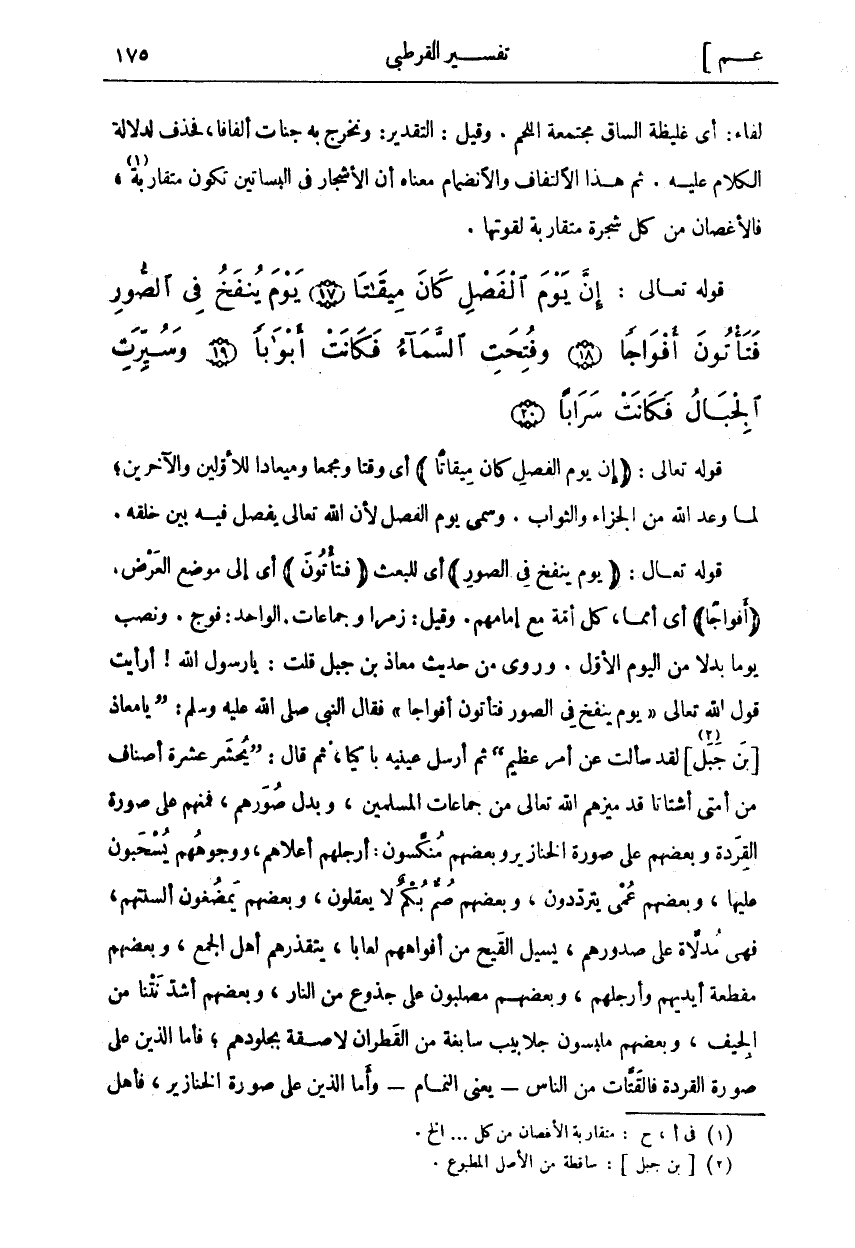 عــم ] تفســير القرطبي ١٧٥
لفاء: أى غليظة الساق مجتمعة اللحم . وقيل : التقدير: ونخرج به جنات ألفافا، فحذف لدلالة
الكلام عليــه . ثم هــذا الالتفاف والانضمام معناه أن الأشجار فى البساتين تكون متقاربة(١) ،
فالأغصان من كل شجرة متقاربة لقوتها .
قوله تعــالى : إِنَّ يَوْمَ ٱلْفَصْلِ كَانَ مِيقَٰتًا ﴿١٧﴾ يَوْمَ يُنفَخُ فِى ٱلصُّورِ
فَتَأْتُونَ أَفْوَاجًا ﴿١٨﴾ وَفُتِحَتِ ٱلسَّمَآءُ فَكَانَتْ أَبْوَٰبًا ﴿١٩﴾ وَسُيِّرَتِ
ٱلْجِبَالُ فَكَانَتْ سَرَابًا ﴿٢٠﴾
قوله تعالى : ﴿ إن يوم الفصلِ كان مِيقاتًا ﴾ أى وقتا ومجمعا وميعادا للأوّلين والآخرين؛
لمــا وعد الله من الجزاء والثواب . وسمى يوم الفصل لأن الله تعالى يفصل فيــه بين خلقه .
قوله تعــال : ﴿ يوم ينفخ فِى الصورِ ﴾ أى للبعث ﴿ فتأْتُونَ ﴾ أى إلى موضع العَرْض.
﴿أَفواجًا﴾ أى أممــا، كل أمّة مع إمامهم. وقيل: زمرا وجماعات. الواحد: فوج . ونصب
يوما بدلا من اليوم الأوّل . وروى من حديث معاذ بن جبل قلت : يارسول الله ! أرأيت
قول الله تعالى « يوم ينفخ فِى الصور فتأتون أفواجا » فقال النبي صلى الله عليه وسلم: ”يامعاذ
[بنَ جَبَل](٢) لقد سألت عن أمر عظيم“ ثم أرسل عينيه باكيا، ثم قال : ”يُحشَر عشرة أصناف
من أمتى أشتاتا قد ميزهم الله تعالى من جماعات المسلمين ، وبدل صُوَرهم ، فمنهم على صورة
القِردة وبعضهم على صورة الخنازير وبعضهم مُنكَّسون: أرجلهم أعلاهم، ووجوهُهم يُسْحَبون
عليها ، وبعضهم عُمْى يتردّدون ، وبعضهم صُمٌّ بُكْمٌ لا يعقلون ، وبعضهم يَمضُغون ألسنتهم،
فهى مُدلّاة على صدورهم ، يسيل القَيح من أفواههم لعابا ، يتقذرهم أهل الجمع ، وبعضهم
مقطعة أيديهم وأرجلهم ، وبعضهــم مصلبون على جذوع من النار ، وبعضهم أشدّ نَتْنا من
الجِيف ، وبعضهم ملبسون جلابيب سابغة من القَطران لاصــقة بجلودهم ؛ فأما الذين على
صورة القردة فالقَتَّات من الناس — يعنى النمــام — وأَما الذين على صورة الخنازير ، فأهل
(١) فى أ ، ح : متقاربة الأغصان من كل ... الخ .
(٢) [ بن جبل ] : ساقطة من الأصل المطبوع .